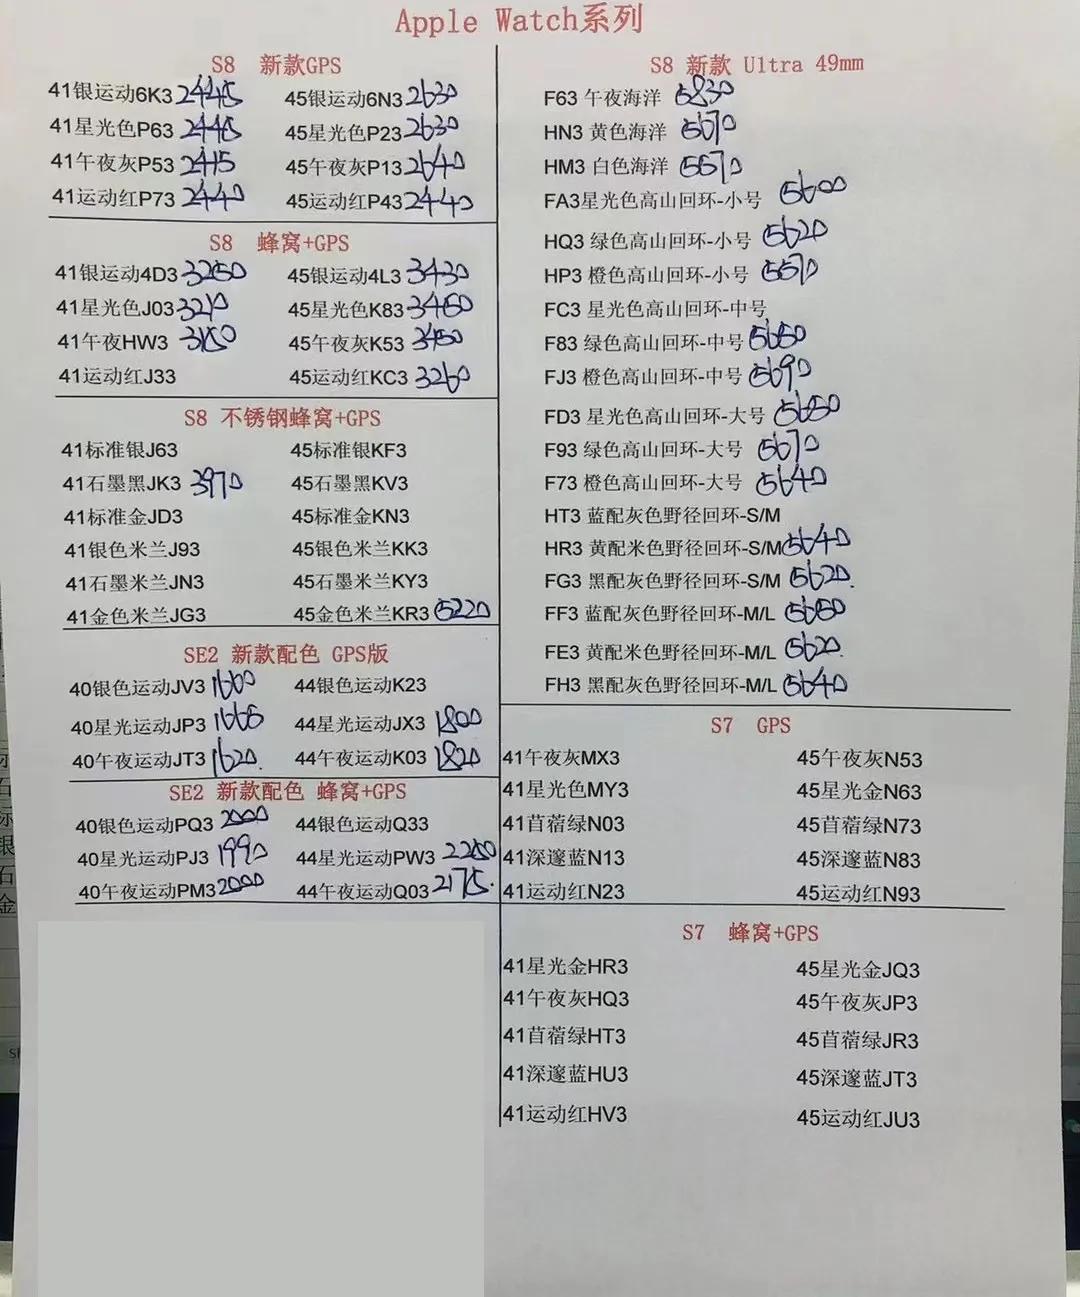 Apple Watch系列
S8 新款GPS
41银运动6K3 2445 45银运动6N3 2630
41星光色P63 2445 45星光色P23 2630
41午夜灰P53 2415 45午夜灰P13 2640
41运动红P73 2440 45运动红P43 2440
S8 蜂窝+GPS
41银运动4D3 3250 45银运动4L3 3430
41星光色J03 3210 45星光色K83 3460
41午夜HW3 3150 45午夜灰K53 3450
41运动红J33 45运动红KC3 3260
S8 不锈钢蜂窝+GPS
41标准银J63 45标准银KF3
41石墨黑JK3 3970 45石墨黑KV3
41标准金JD3 45标准金KN3
41银色米兰J93 45银色米兰KK3
41石墨米兰JN3 45石墨米兰KY3
41金色米兰JG3 45金色米兰KR3 5220
SE2 新款配色 GPS版
40银色运动JV3 1660 44银色运动K23
40星光运动JP3 1665 44星光运动JX3 1800
40午夜运动JT3 1620. 44午夜运动K03 1820
SE2 新款配色 蜂窝+GPS
40银色运动PQ3 2000 44银色运动Q33
40星光运动PJ3 1990 44星光运动PW3 2250
40午夜运动PM3 2000 44午夜运动Q03 2175.
S8 新款 Ultra 49mm
F63 午夜海洋 5830
HN3 黄色海洋 5670
HM3 白色海洋 5570
FA3星光色高山回环-小号 5600
HQ3 绿色高山回环-小号 5620
HP3 橙色高山回环-小号 5570
FC3 星光色高山回环-中号
F83 绿色高山回环-中号 5650
FJ3 橙色高山回环-中号 5690
FD3 星光色高山回环-大号 5650
F93 绿色高山回环-大号 5670
F73 橙色高山回环-大号 5640
HT3 蓝配灰色野径回环-S/M
HR3 黄配米色野径回环-S/M 5640
FG3 黑配灰色野径回环-S/M 5620.
FF3 蓝配灰色野径回环-M/L 5650
FE3 黄配米色野径回环-M/L 5620.
FH3 黑配灰色野径回环-M/L 5640
S7 GPS
41午夜灰MX3 45午夜灰N53
41星光色MY3 45星光金N63
41苜蓿绿N03 45苜蓿绿N73
41深邃蓝N13 45深邃蓝N83
41运动红N23 45运动红N93
S7 蜂窝+GPS
41星光金HR3 45星光金JQ3
41午夜灰HQ3 45午夜灰JP3
41苜蓿绿HT3 45苜蓿绿JR3
41深邃蓝HU3 45深邃蓝JT3
41运动红HV3 45运动红JU3